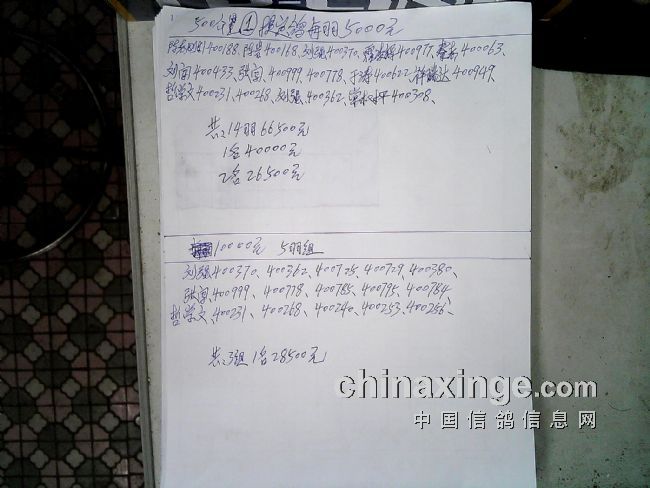 500公里① 提前鸽每羽5000元
400188、400168、刘强400370、400977、400063、
刘 400433、张 400999、400778、于涛400622、400949、
哲学文400231、400268、刘强、400362、400308、
共:14羽66500元
1名40000元
2名26500元
10000元 5羽组
刘强400370、400362、400725、400729、400380、
张 400999、400778、400785、400795、400784、
哲学文、400231、400268、400240、400253、400256、
共:3组1名28500元
chinaxinge.com
中国信鸽信息网